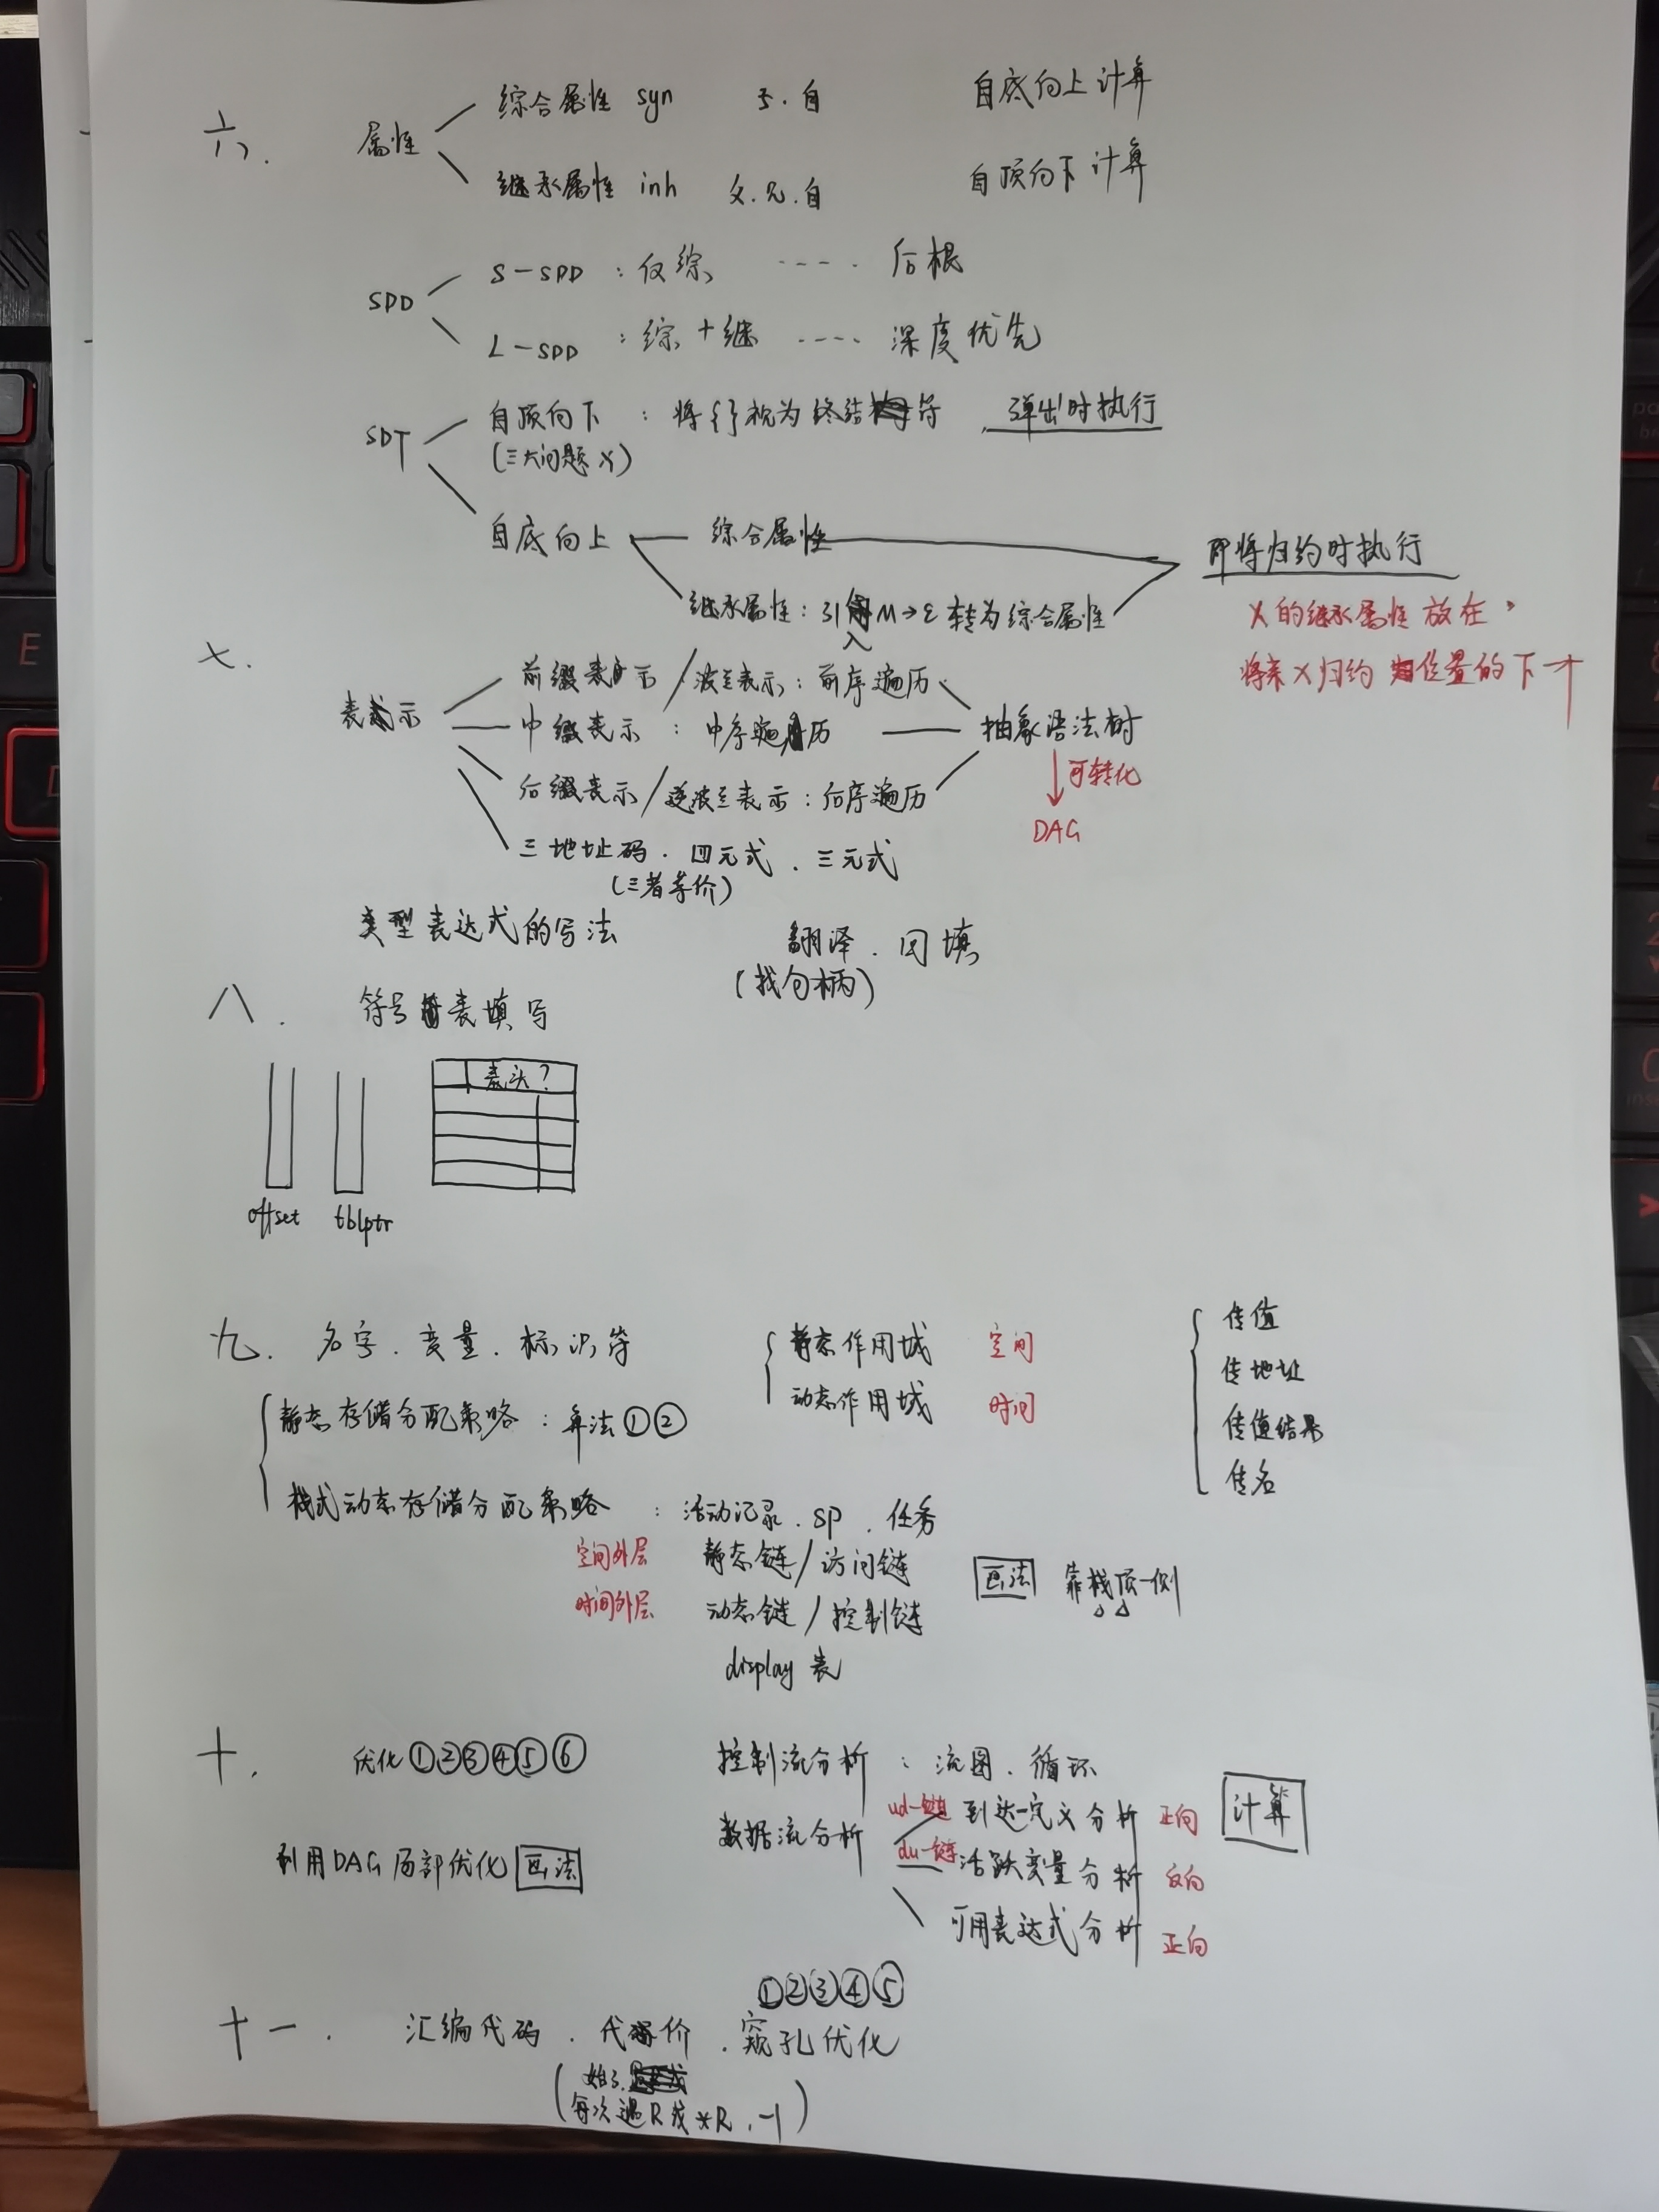 六.
属性
综合属性 syn 子.自 自底向上计算
继承属性 inh 父.兄.自 自顶向下计算
SDD
S-SDD : 仅综 ---- 后根
L-SDD : 综+继 ---- 深度优先
SDT
自顶向下 : 将{}视为终结符 , 弹出时执行
(三大问题×)
自底向上
综合属性
继承属性: 引入M→ε转为综合属性
即将归约时执行
X的继承属性放在
将来X归约位置的下一个
七.
表示
前缀表示/波兰表示: 前序遍历
中缀表示 : 中序遍历
后缀表示/逆波兰表示: 后序遍历
抽象语法树
可转化
DAG
三地址码. 四元式. 三元式
(三者等价)
类型表达式的写法 翻译. 回填
(找句柄)
八. 符号表填写
表头?
offset tblptr
九. 名字. 变量. 标识符
静态作用域 空间
动态作用域 时间
传值
传地址
传值结果
传名
静态存储分配策略 : 算法①②
栈式动态存储分配策略 : 活动记录. sp . 任务
空间外层 静态链/访问链
时间外层 动态链/控制链
画法 靠栈顶一侧
display 表
十. 优化①②③④⑤⑥
控制流分析 : 流图. 循环
数据流分析
ud-链 到达-定义分析 正向
du-链 活跃变量分析 反向
可用表达式分析 正向
计算
利用DAG局部优化 画法
①②③④⑤
十一. 汇编代码. 代价. 窥孔优化
(始3.
每次遇R或*R, -1)